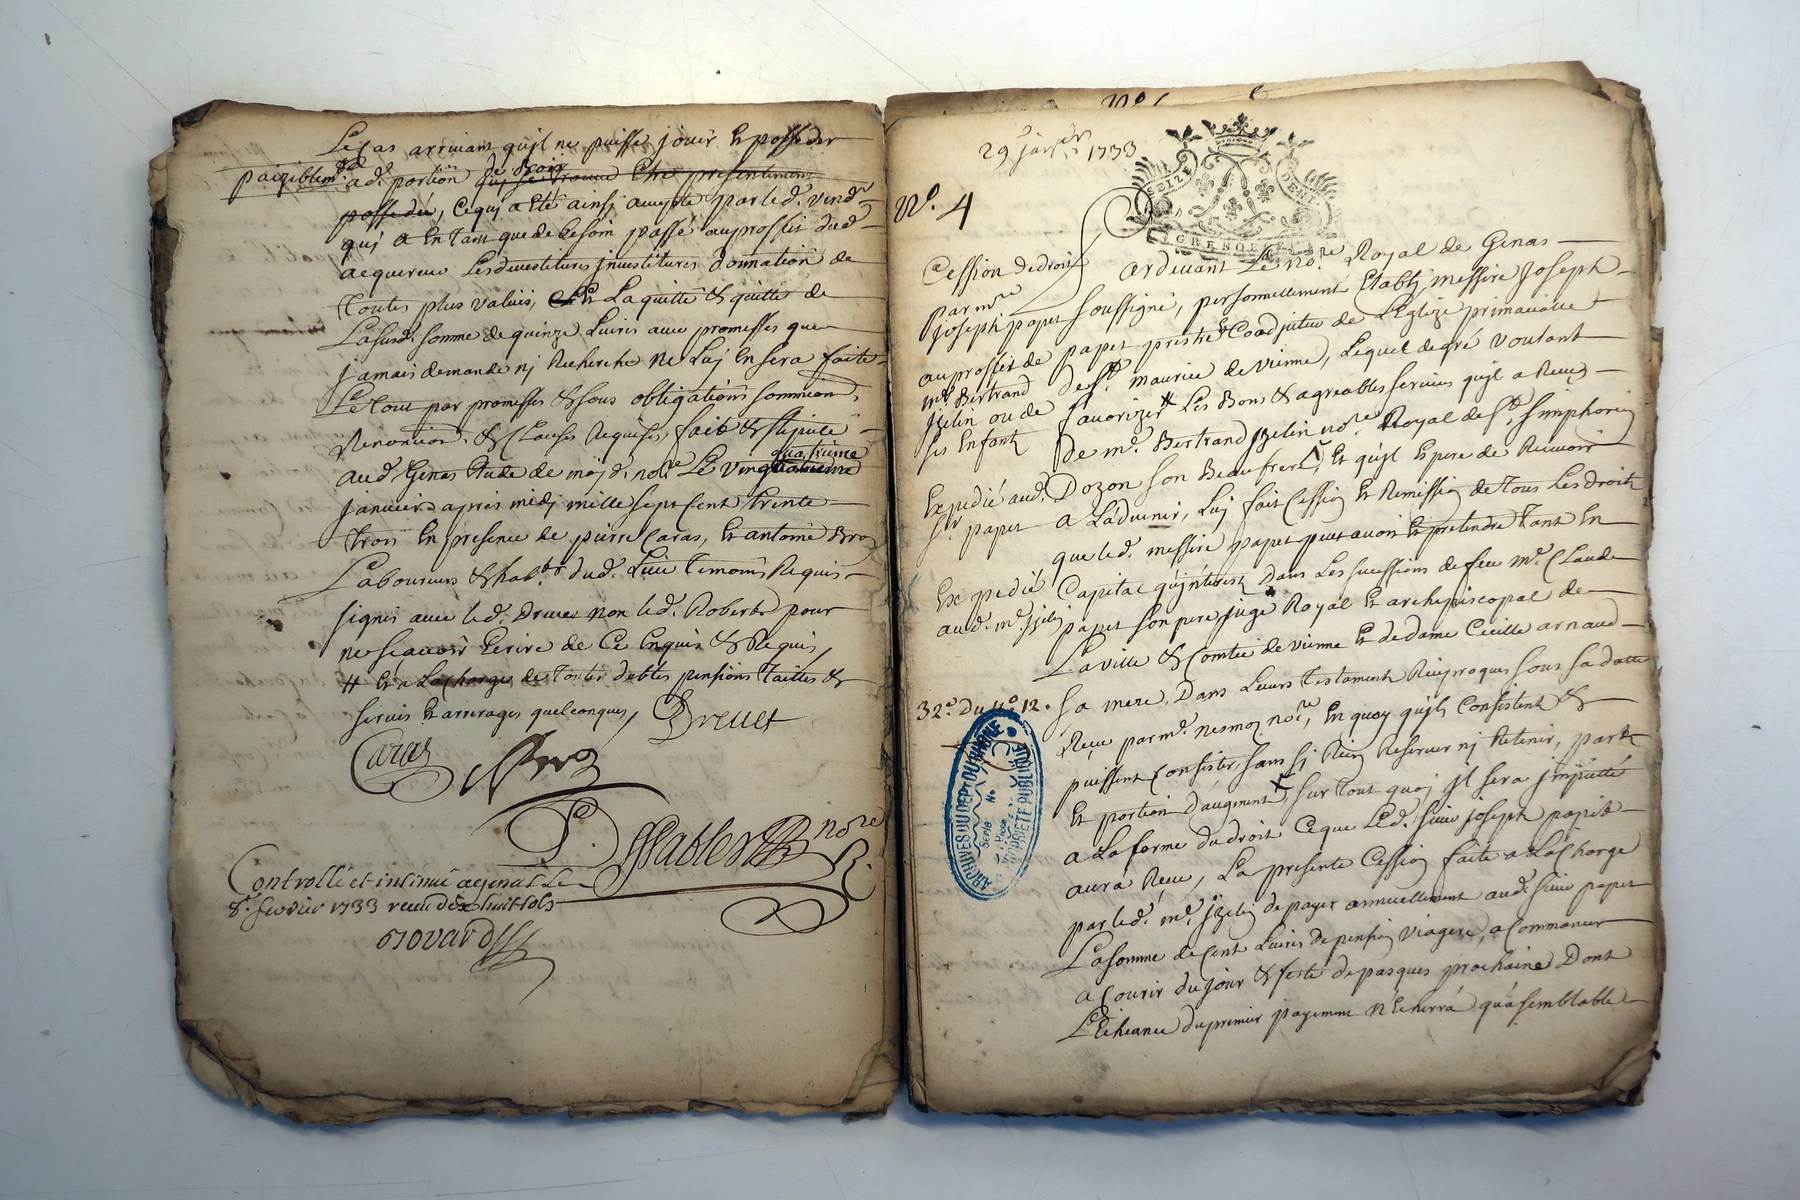 Le Cas arrivant qu'il ne puisse jouir Et posseder
paiziblem.t lad.e portion de droit qui se trouve Etre presentement
possedée, Ce qui a Eté ainsi accepté par led. vend.r
qui a En tant que de besoin passé au proffit dud.
acquereur Les devestitures investitures donnation de
toutes plus values, Et La quitté & quitte de
La susd. somme de quinze Livres avec promesses que
jamais demande nj Recherche ne Luj En sera faite
Le tout par promesses & sous obligations soumiƽƽions,
Renonciaõn. & Clauses Requises, fait & stipulé
aud. Genas Etude de moj d. no.re Le vingt quatrieme
janvier apres midj mille sept Cent trente
trois En presence de pierre Caras, Et antoine Bro
Laboureurs & hab.ts dud. Lieu temoins Requis
signés avec led. Drevet non led. Roberbe pour
ne sçavoir Ecrire de Ce Enquis & Requis,
# Et a La Charge de toutes debtes pensions tailles &
servis Et arrerages quelconques, Drevet
Caras Bro
P. Sablerre no.re
Controllé et insinué a genas Le
8.e fevrier 1733 receu dix huit sols
Grovard
29.e janv.er 1733
SEIZE DENI
GRENOBLE
N.o 4
Cession de droit
par m.re
joseph papet
au proffit de
m.e Bertrand
jzelin ou de
ses Enfants
Expedié aud.
S.r papet
Expedié
aud. m.e jzelin
32.e Du n.o 12.
Pardevant Le no.re Royal de Genas
soussigné, personnellement Etably messire joseph
papet prestre & Coadjuteur de L'Eglize primatiale
de S.t maurice de vienne, Lequel de gré voulant
favorizer # Les Bons & agreables services qu'il a Receus
de m.e Bertrand jzelin no.re Royal de S.t simphorien
Dozon son Beaufrere, Et qu'il Espere de Recevoir
a L'advenir, Luj fait Cession Et Remission de tous Les droits
que led. messire papet peut avoir Et pretendre tant En
Capital qu'interest dans Les successions de feu m.e Claude
papet son pere juge Royal Et archepiscopal de
La ville & Comté de vienne Et de dame Cecille arnaud
sa mere, Dans Leurs testament Reciproques sous sa datte
Receu par m.e nesmoz no.re, En quoy qu'ils Consistent &
puissent Consister, sans sj Rien Reserver nj Retenir, parts
Et portion d'augment, sur tout quoj jl sera jmputé
a La forme du droit Ce que Led. sieur joseph papet
aura Receu, La presente Cession faite a La Charge
par led. m.e jzelin de payer annuellement aud. sieur papet
La somme de Cent Livres de pension viagere, a Commancer
a Courir du jour & feste de pasques prochaine Dont
L'Echeance du premier payement n'Echerra qu'a semblable
ARCHIVES DU DEP.T DU RHONE
Serie
No
Piece
PROPRIETE PUBLIQUE